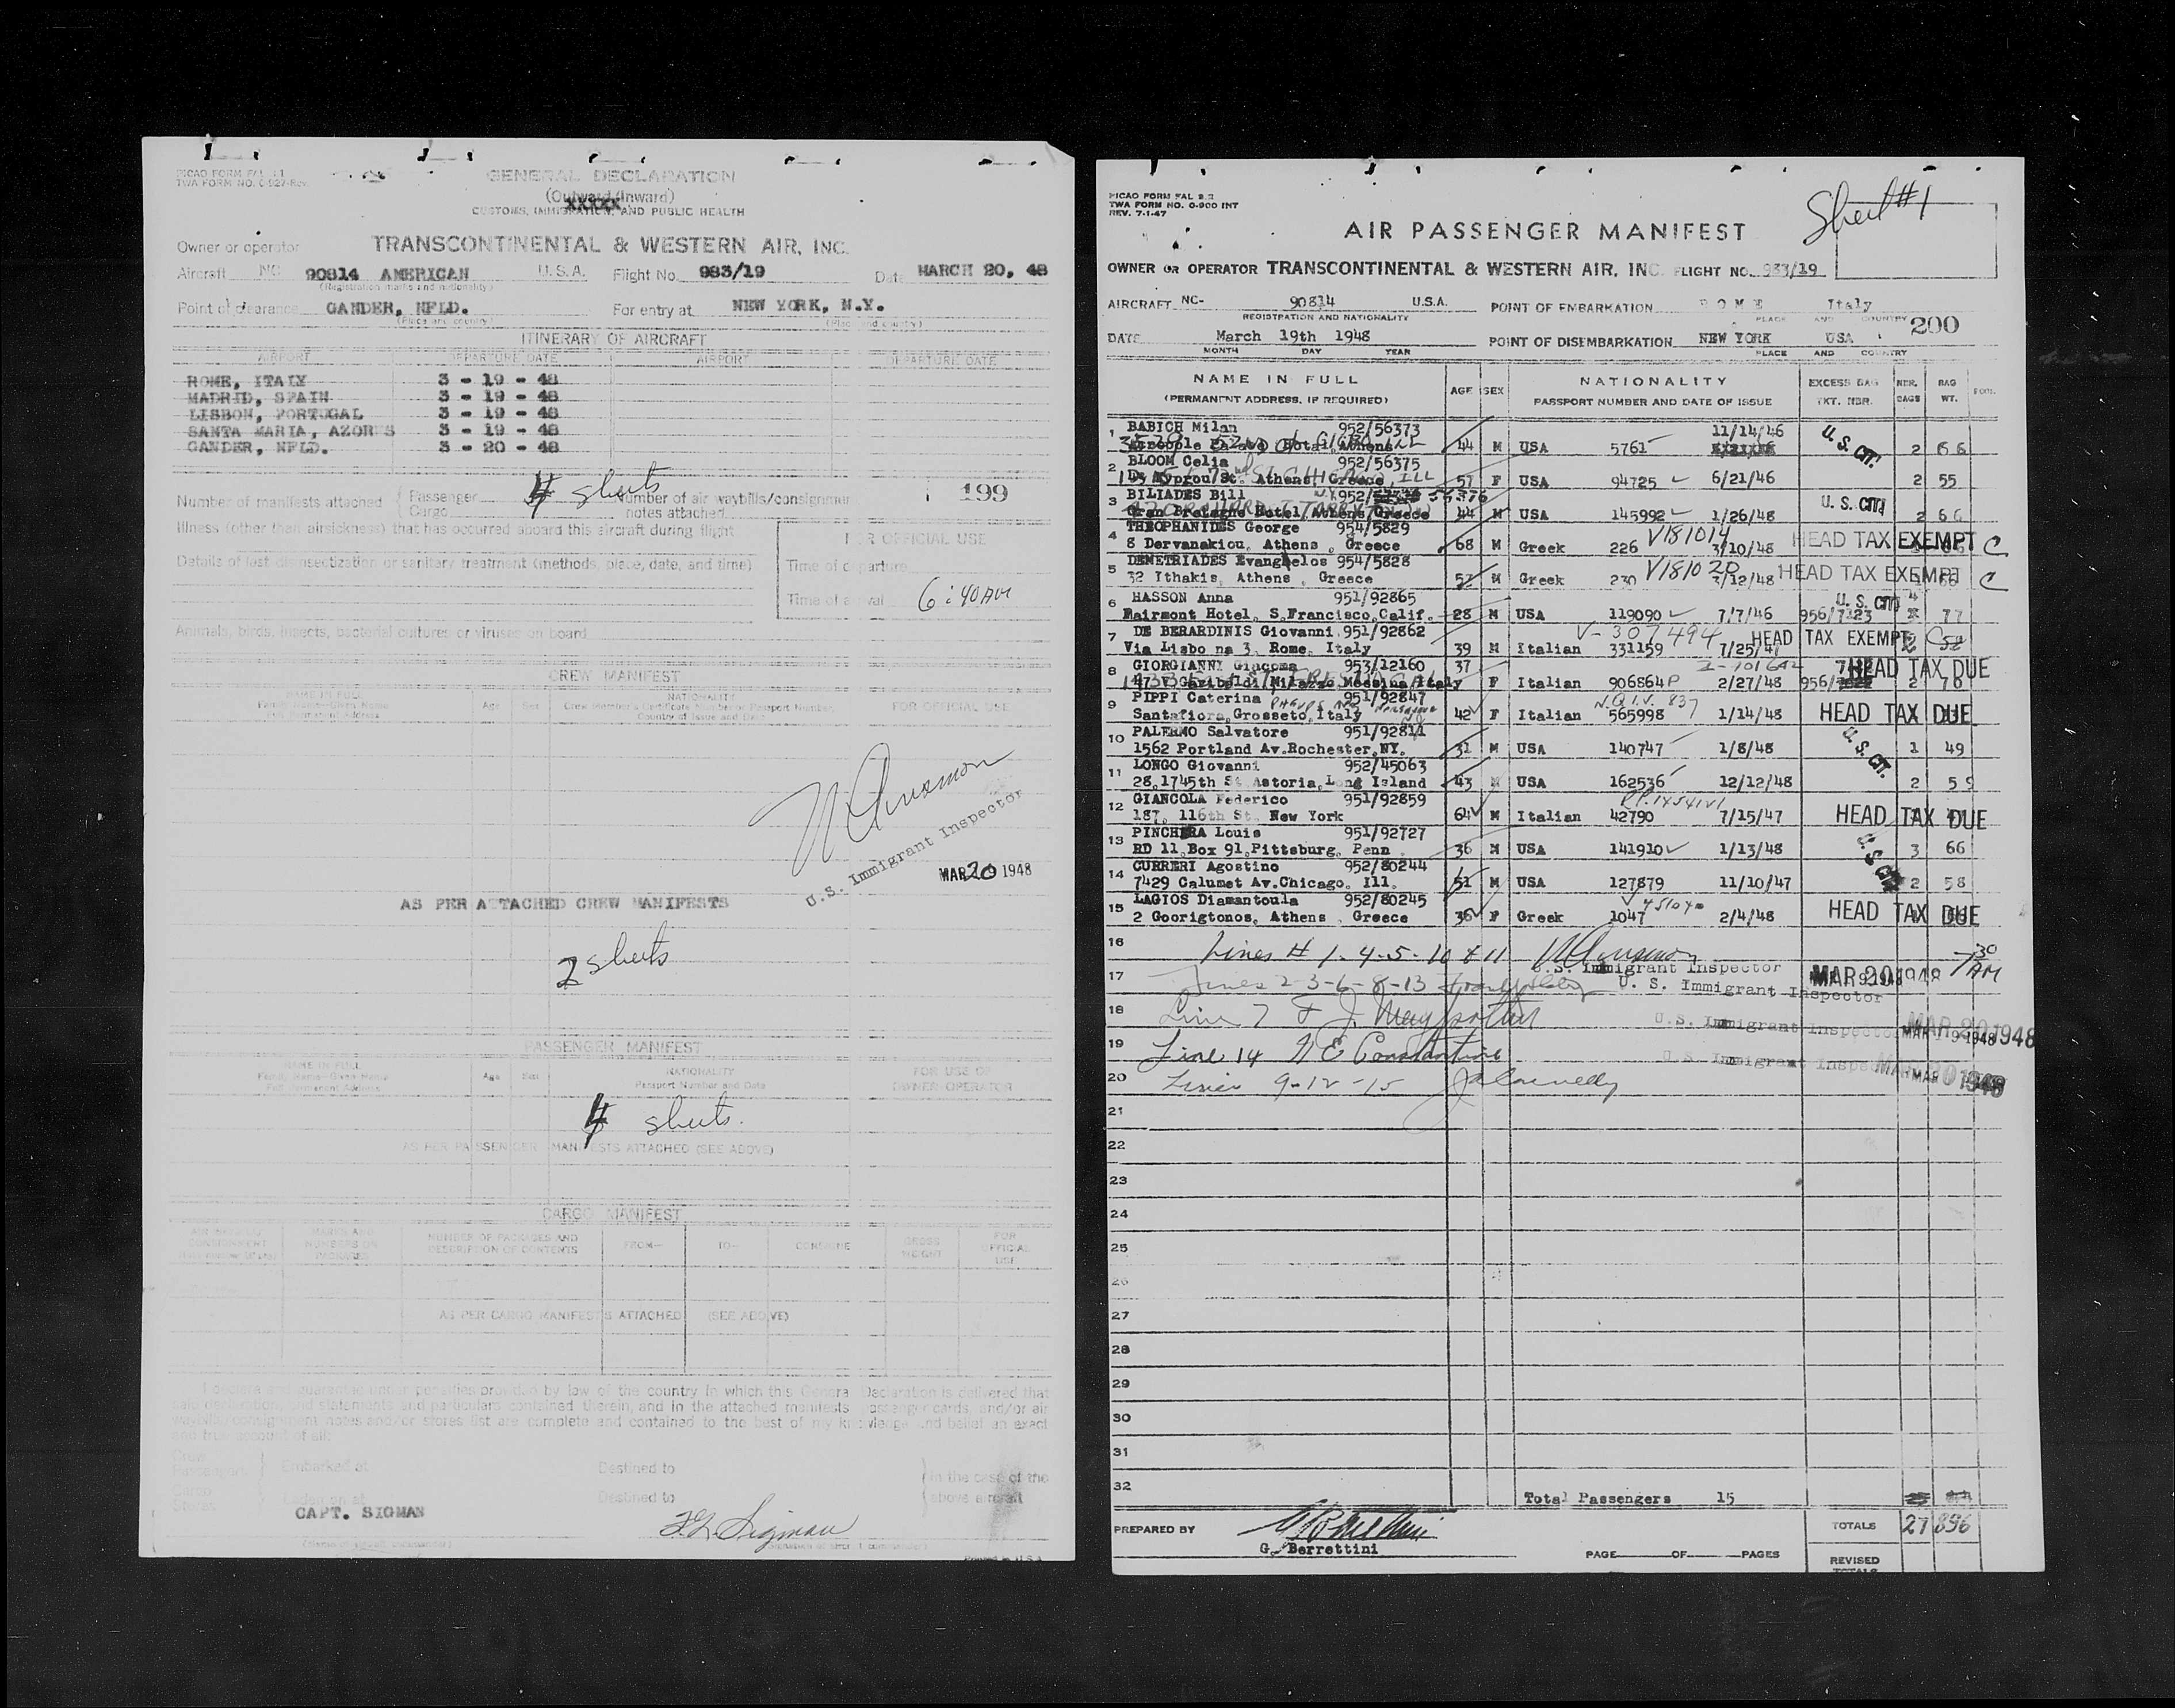 ICAO FORM FAL
TWA FORM NO. 0-927-Rev.
GENERAL DECLARATION
(Outward/Inward)
XXXXX
CUSTOMS, IMMIGRATION, AND PUBLIC HEALTH
Owner or operator TRANSCONTINENTAL & WESTERN AIR, INC.
Aircraft NC 90814 AMERICAN U.S.A. Flight No. 983/19 Date MARCH 20, 48
(Registration marks and nationality)
Point of clearance GANDER, NFLD. For entry at NEW YORK, N.Y.
(Place and country) (Place and country)
ITINERARY OF AIRCRAFT
AIRPORT DEPARTURE DATE AIRPORT DEPARTURE DATE
ROME, ITALY 3 - 19 - 48
MADRID, SPAIN 3 - 19 - 48
LISBON, PORTUGAL 3 - 19 - 48
SANTA MARIA, AZORES 3 - 19 - 48
GANDER, NFLD. 3 - 20 - 48
Number of manifests attached { Passenger 4 sheets Number of air waybills/consignment 199
Cargo notes attached
Illness (other than airsickness) that has occurred aboard this aircraft during flight
FOR OFFICIAL USE
Details of last disinsectization or sanitary treatment (methods, place, date, and time)
Time of departure
Time of arrival 6:40 AM
Animals, birds, insects, bacterial cultures or viruses on board
CREW MANIFEST
NAME IN FULL NATIONALITY
Family Name-Given Name Age Sex Crew Member's Certificate Number or Passport Number FOR OFFICIAL USE
and Permanent Address Country of Issue and Date
U.S. Immigrant Inspector
MAR 20 1948
AS PER ATTACHED CREW MANIFESTS
2 sheets
PASSENGER MANIFEST
NAME IN FULL NATIONALITY FOR USE OF
Family Name-Given Name Age Sex Passport Number and Date OWNER-OPERATOR
and Permanent Address
4 sheets.
AS PER PASSENGER MANIFESTS ATTACHED (SEE ABOVE)
CARGO MANIFEST
NUMBER OF PACKAGES AND
DESCRIPTION OF CONTENTS FROM— TO— CONSIGNEE GROSS WEIGHT FOR OFFICIAL USE
AS PER CARGO MANIFESTS ATTACHED (SEE ABOVE)
I declare and guarantee under penalties provided by law of the country in which this General Declaration is delivered that
said declaration, and statements and particulars contained therein, and in the attached manifests passenger cards, and/or air
waybills/consignment notes and/or stores list are complete and contained to the best of my knowledge and belief an exact
and true account of all:
Crew
Passengers } Embarked at Destined to { in the case of the
Cargo
Stores } Laden on at Destined to above aircraft
CAPT. SIGMAN Sigman
Sheet #1
PICAO FORM FAL 2.2
TWA FORM NO. 0-900 INT
REV. 7-1-47
AIR PASSENGER MANIFEST
OWNER OR OPERATOR TRANSCONTINENTAL & WESTERN AIR, INC. FLIGHT NO. 983/19
AIRCRAFT NC- 90814 U.S.A. POINT OF EMBARKATION ROME Italy
REGISTRATION AND NATIONALITY PLACE AND COUNTRY
200
DATE March 19th 1948 POINT OF DISEMBARKATION NEW YORK USA
MONTH DAY YEAR PLACE AND COUNTRY
NAME IN FULL AGE SEX NATIONALITY EXCESS BAG NBR. BAG
(PERMANENT ADDRESS, IF REQUIRED) PASSPORT NUMBER AND DATE OF ISSUE TKT. NBR. BAGS WT.
1 BABICH Milan 952/56373 11/14/46
Hotel, Athens 44 M USA 5761 U.S. CIT. 2 66
2 BLOOM Celia 952/56375
Kyprou St. Athens, Greece 57 F USA 94725 6/21/46 2 55
3 BILIADES Bill 952/ 56376
Gran Bretagne Hotel, Athens, Greece 44 M USA 145992 1/26/48 U.S. CIT. 2 66
4 THEOPHANIDES George 954/5829 V181014
8 Dervanakiou, Athens, Greece 68 M Greek 226 3/10/48 HEAD TAX EXEMPT C
5 DEMETRIADES Evanghelos 954/5828 V181020
32 Ithakis, Athens, Greece 52 M Greek 230 3/12/48 HEAD TAX EXEMPT 66 C
6 HASSON Anna 951/92865 U.S. CIT. 4
Fairmont Hotel, S.Francisco, Calif. 28 M USA 119090 7/7/46 956/7123 77
7 DE BERARDINIS Giovanni 951/92862 V-307494 HEAD TAX EXEMPT
Via Lisbo na 3, Rome, Italy 39 M Italian 331159 7/25/47 2 C 52
8 GIORGIANNI Giacoma 953/12160 37
47 V. Garibaldi, Milazzo Messina Italy F Italian 906864 P 2/27/48 956/ HEAD TAX DUE 2 70
9 PIPPI Caterina 951/92847 N.Q.I.V. 837
Santafiora, Grosseto, Italy 42 F Italian 565998 1/14/48 HEAD TAX DUE
10 PALERMO Salvatore 951/92811
1562 Portland Av.Rochester, NY. 31 M USA 140747 1/8/48 U.S. CIT. 1 49
11 LONGO Giovanni 952/45063
28,1745th St Astoria, Long Island 43 M USA 162536 12/12/48 2 59
12 GIANCOLA Federico 951/92859
187, 116th St. New York 64 M Italian 42790 7/15/47 HEAD TAX DUE
13 PINCHERA Louis 951/92727
RD 11, Box 91, Pittsburg, Penn 36 M USA 141910 1/13/48 U.S. CIT. 3 66
14 CURRERI Agostino 952/80244
7429 Calumet Av.Chicago, Ill. 51 M USA 127879 11/10/47 2 58
15 LAGIOS Diamantoula 952/80245
2 Goorigtonos, Athens, Greece 36 F Greek 1047 2/4/48 HEAD TAX DUE
16 Lines # 1-4-5-10 & 11
U.S. Immigrant Inspector MAR 20 1948 7:30 AM
17 Lines 2-3-6-8-13 U. S. Immigrant Inspector
18 Line 7 U.S. Immigrant Inspector MAR 20 1948
19 Line 14 N E Constantine U.S. Immigrant Inspector
20 Lines 9-12-15
21
22
23
24
25
26
27
28
29
30
31
32
Total Passengers 15
PREPARED BY TOTALS 27 896
G. Berrettini
PAGE OF PAGES REVISED TOTALS